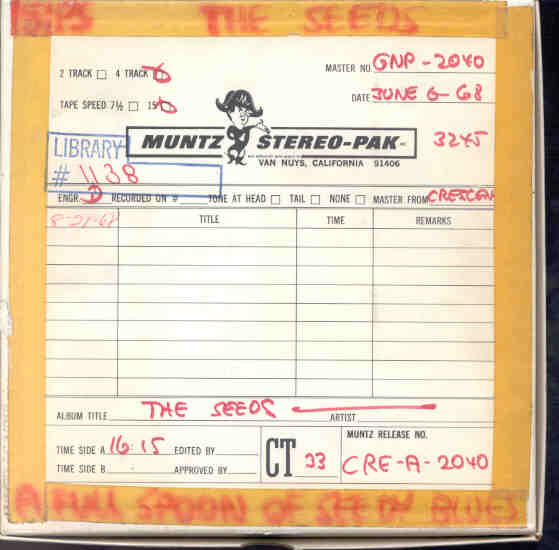 THE SEEDS
2 TRACK 4 TRACK
MASTER NO. GNP-2040
TAPE SPEED 7½ 15
DATE JUNE 6-68
MUNTZ STEREO-PAK
3245
VAN NUYS, CALIFORNIA 91406
LIBRARY
# 1138
ENGR. RECORDED ON # TONE AT HEAD TAIL NONE MASTER FROM
TITLE TIME REMARKS
ALBUM TITLE THE SEEDS ARTIST
TIME SIDE A 16:15 EDITED BY
TIME SIDE B APPROVED BY
CT 33
MUNTZ RELEASE NO.
CRE-A-2040
A FULL SPOON OF SEEDY BLUES